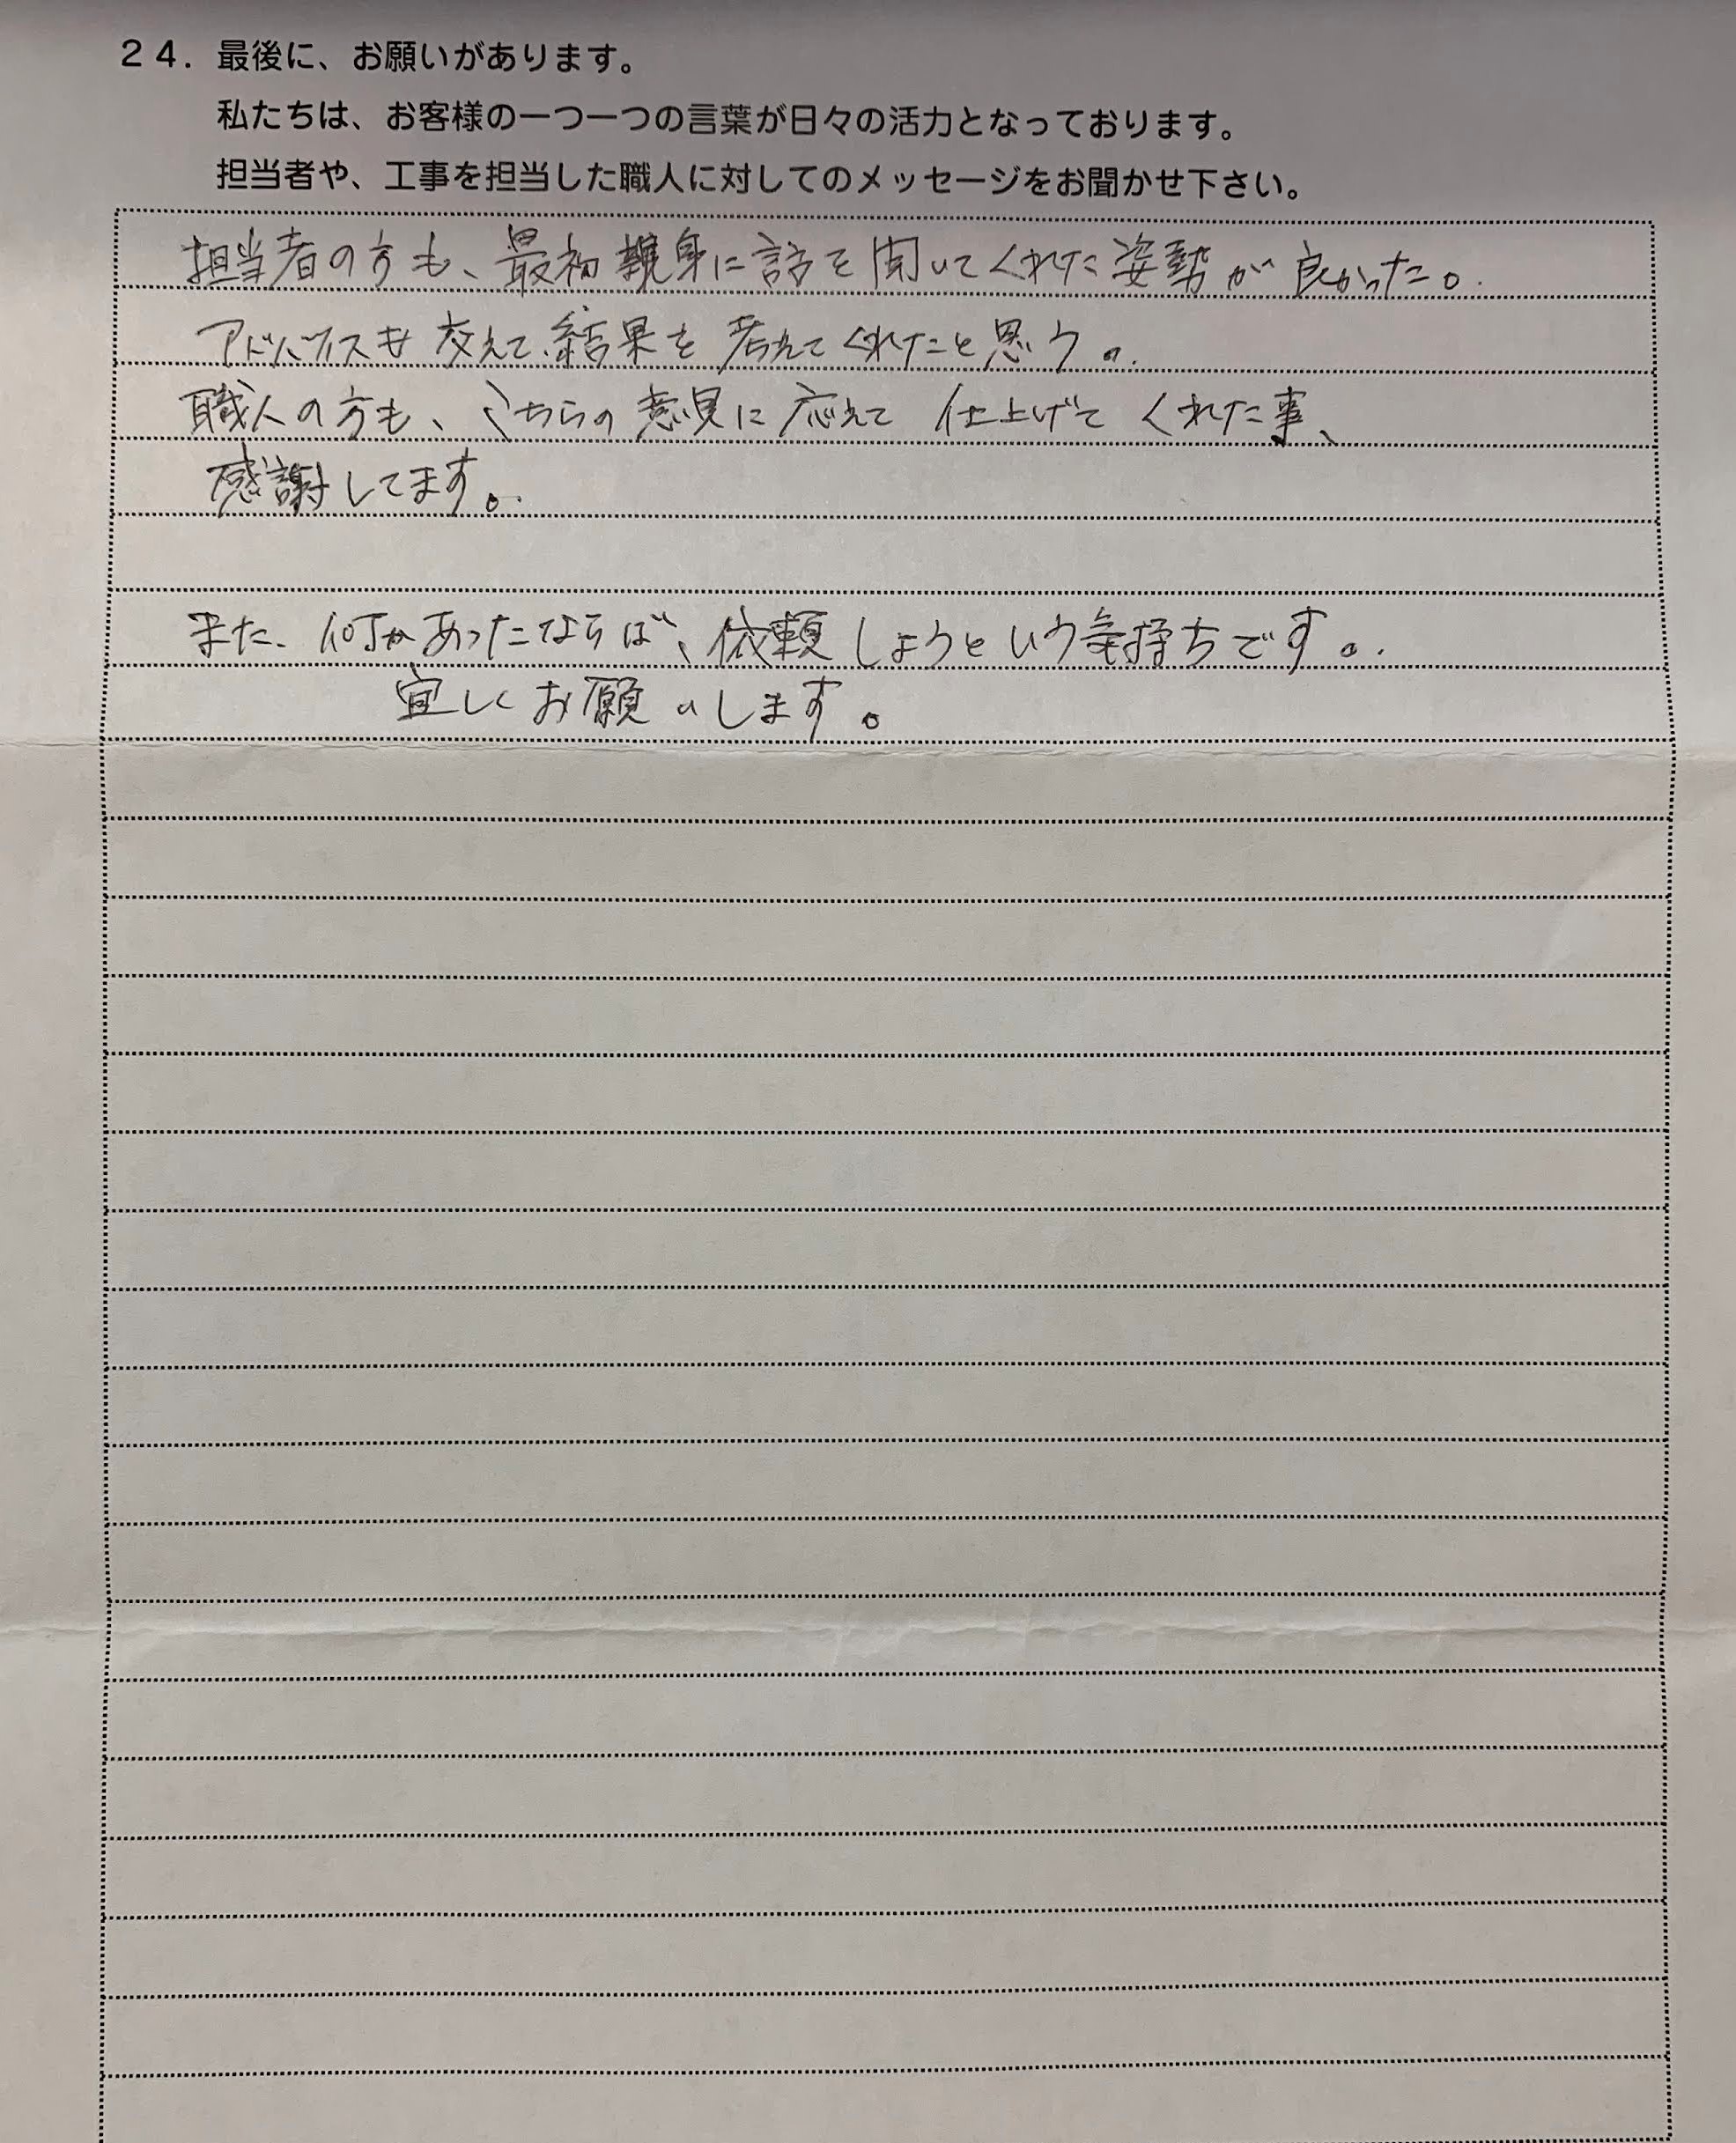 ２４．最後に、お願いがあります。
私たちは、お客様の一つ一つの言葉が日々の活力となっております。
担当者や、工事を担当した職人に対してのメッセージをお聞かせ下さい。
担当者の方も、最初親身に話を聞いてくれた姿勢が良かった。
アドバイスも交えて、結果を考えてくれたと思う。
職人の方も、こちらの意見に応えて仕上げてくれた事、
感謝してます。
また、何かあったならば、依頼しようという気持ちです。
宜しくお願いします。